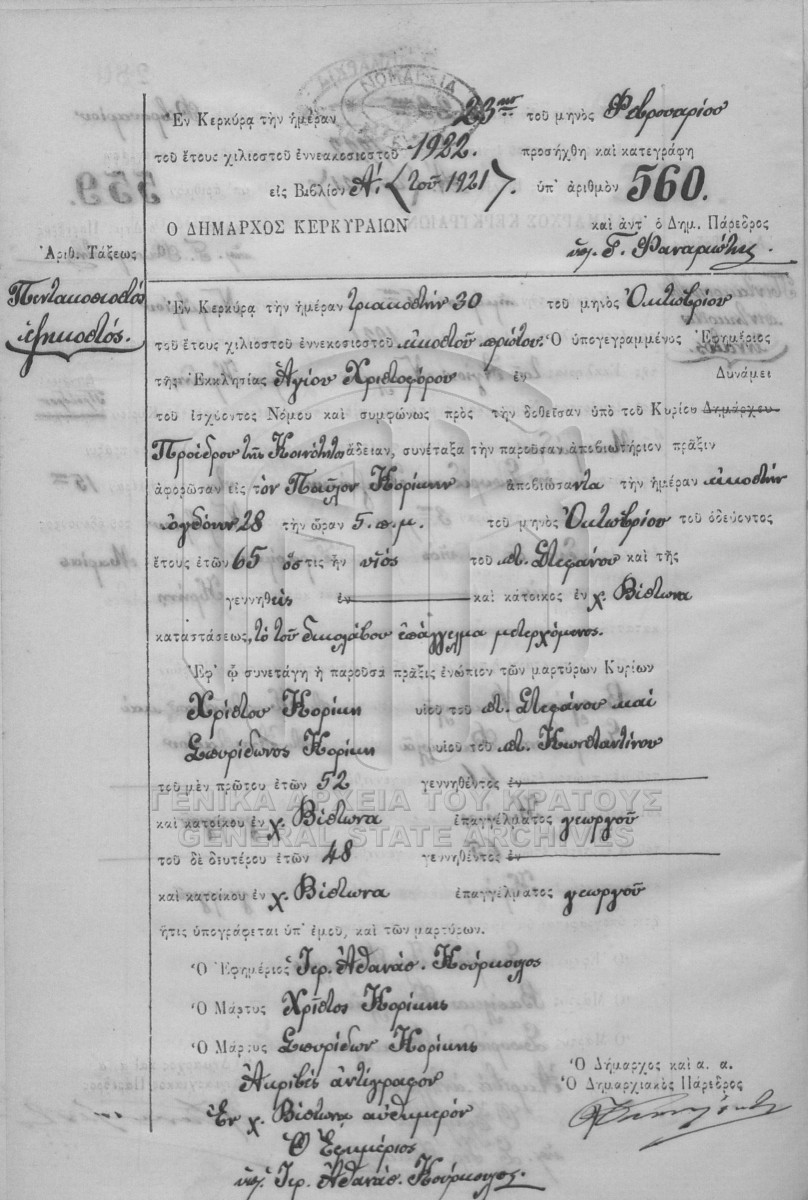 ΝΟΜΑΡΧΙΑ
Ἐν Κερκύρᾳ τὴν ἡμέραν 23ην τοῦ μηνὸς Φεβρουαρίου
τοῦ ἔτους χιλιοστοῦ ἐννεακοσιοστοῦ 1922. προσήχθη καὶ κατεγράφη
εἰς Βιβλίον Α΄. (τοῦ 1921). ὑπ' ἀριθμὸν 560.
Ο ΔΗΜΑΡΧΟΣ ΚΕΡΚΥΡΑΙΩΝ καὶ ἀντ' ὁ Δημ. Πάρεδρος
Ἀριθ. Τάξεως
Πεντακοσιοστὸς
ἑξηκοστός.
Ἐν Κερκύρᾳ τὴν ἡμέραν τριακοστήν 30 τοῦ μηνὸς Ὀκτωβρίου
τοῦ ἔτους χιλιοστοῦ ἐννεκοσιοστοῦ εἰκοστοῦ πρώτου. Ὁ ὑπογεγραμμένος Ἐφημέριος
τῆς Ἐκκλησίας Ἁγίου Χριστοφόρου ἐν Δυνάμει
τοῦ ἰσχύοντος Νόμου καὶ συμφώνως πρὸς τὴν δοθεῖσαν ὑπὸ τοῦ Κυρίου Δημάρχου
Προέδρου τῆς Κοινότητος ἄδειαν, συνέταξα τὴν παροῦσαν ἀποβιωτήριον πρᾶξιν
ἀφορῶσαν εἰς τὸν Παῦλον Κορίκην ἀποβιώσαντα τὴν ἡμέραν εἰκοστὴν
ὀγδόην 28 τὴν ὥραν 5. π. μ. τοῦ μηνὸς Ὀκτωβρίου τοῦ ὁδεύοντος
ἔτους ἐτῶν 65 ὅστις ἦν υἱὸς τοῦ Στεφάνου καὶ τῆς
γεννηθεὶς ἐν καὶ κάτοικος ἐν χ. Βίστωνα
καταστάσεως, τὸ τοῦ δικολάβου ἐπάγγελμα μετερχόμενος.
Ἐφ' ᾧ συνετάγη ἡ παροῦσα πρᾶξις ἐνώπιον τῶν μαρτύρων Κυρίων
Χρίστου Κορίκη υἱοῦ τοῦ Στεφάνου καὶ
Σπυρίδωνος Κορίκη υἱοῦ τοῦ Κωνσταντίνου
τοῦ μὲν πρώτου ἐτῶν 52 γεννηθέντος ἐν
ΓΕΝΙΚΑ ΑΡΧΕΙΑ ΤΟΥ ΚΡΑΤΟΥΣ
καὶ κατοίκου ἐν χ. Βίστωνα ἐπαγγέλματος γεωργοῦ
GENERAL STATE ARCHIVES
τοῦ δὲ δευτέρου ἐτῶν 48 γεννηθέντος ἐν
καὶ κατοίκου ἐν χ. Βίστωνα ἐπαγγέλματος γεωργοῦ
ἥτις ὑπογράφεται ὑπ' ἐμοῦ, καὶ τῶν μαρτύρων.
Ὁ Ἐφημέριος Ἱερ. Ἀθανάσ. Κούρκουλος
Ὁ Μάρτυς Χρῖστος Κορίκης
Ὁ Μάρτυς Σπυρίδων Κορίκης
Ἀκριβὲς ἀντίγραφον
Ἐν χ. Βίστωνα αὐθημερόν
Ὁ Ἐφημέριος
Ἱερ. Ἀθανάσ. Κούρκουλος.
Ὁ Δήμαρχος καὶ α. α.
Ὁ Δημαρχιακὸς Πάρεδρος